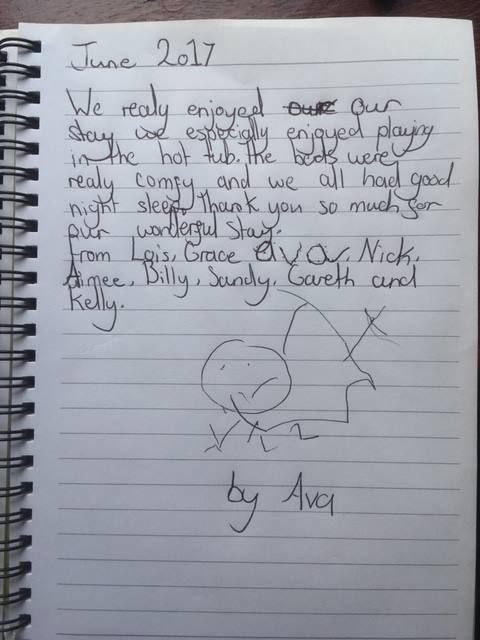 June 2017
We realy enjoyed our
stay we especially enjoyed playing
in the hot tub. the beds were
realy comfy and we all had good
night sleep Thank you so much for
our wonderful stay.
From Lois, Grace ava, Nick,
Aimee, Billy, Sandy, Gareth and
Kelly.
by Ava